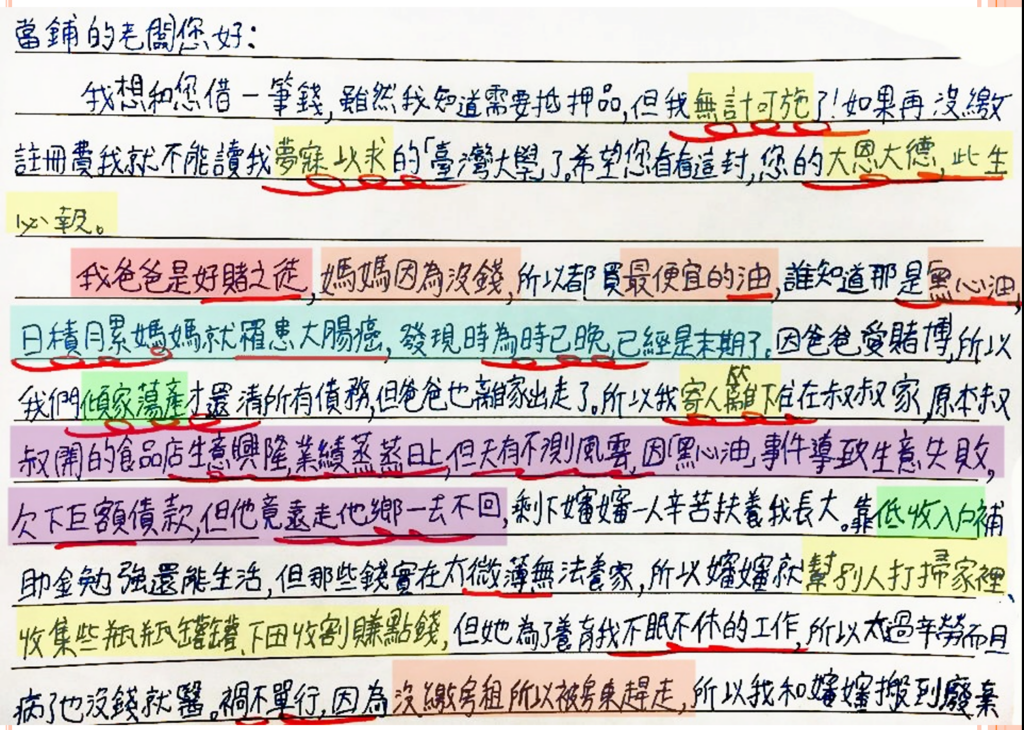 當鋪的老闆您好：
我想和您借一筆錢，雖然我知道需要抵押品，但我無計可施了！如果再沒繳
註冊費我就不能讀我夢寐以求的「臺灣大學了。希望您看看這封，您的大恩大德，此生
必報。
我爸爸是好賭之徒，媽媽因為沒錢，所以都買最便宜的油，誰知道那是黑心油，
日積月累媽媽就罹患大腸癌，發現時為時已晚，已經是末期了。因爸爸愛賭博，所以
我們傾家蕩產才還清所有債務，但爸爸也離家出走了。所以我寄人離下住在叔叔家，原本叔
叔開的食品店生意興隆，業績蒸蒸日上，但天有不測風雲，因「黑心油」事件導致生意失敗，
欠下巨額債款，但他竟遠走他鄉一去不回，剩下嬸嬸一人辛苦扶養我長大。靠低收入戶補
助金勉強還能生活，但那些錢實在太微薄無法養家，所以嬸嬸就幫別人打掃家裡、
收集些瓶瓶罐罐、下田收割賺點錢，但她為了養育我不眠不休的工作，所以太過辛勞而且
病了也沒錢就醫。禍不單行，因為沒繳房租所以被房東趕走，所以我和嬸嬸搬到廢棄